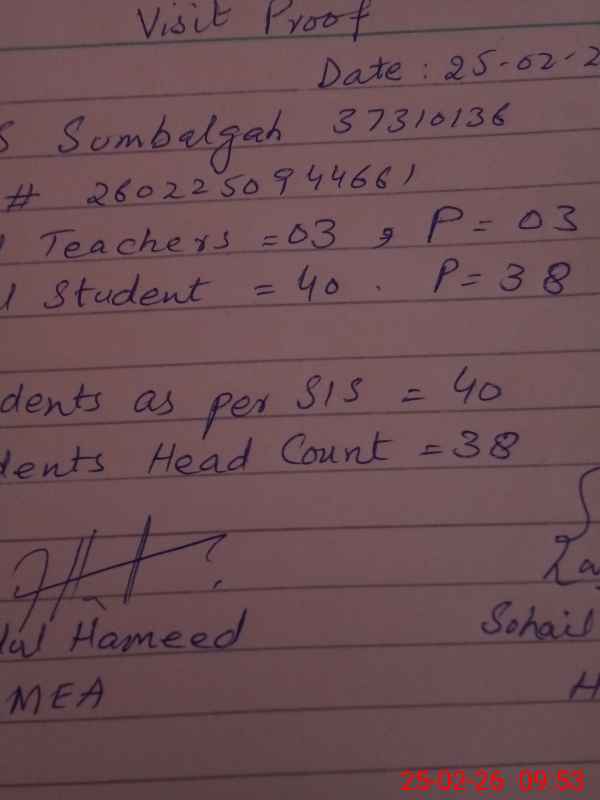 Visit Proof
Date: 25-02-2
S Sumbalgah 37310136
# 2602250944661
l Teachers = 03 , P = 03
l Student = 40 . P = 38
dents as per SIS = 40
dents Head Count = 38
Hameed
Sohail
MEA
H
25-02-26 09:53